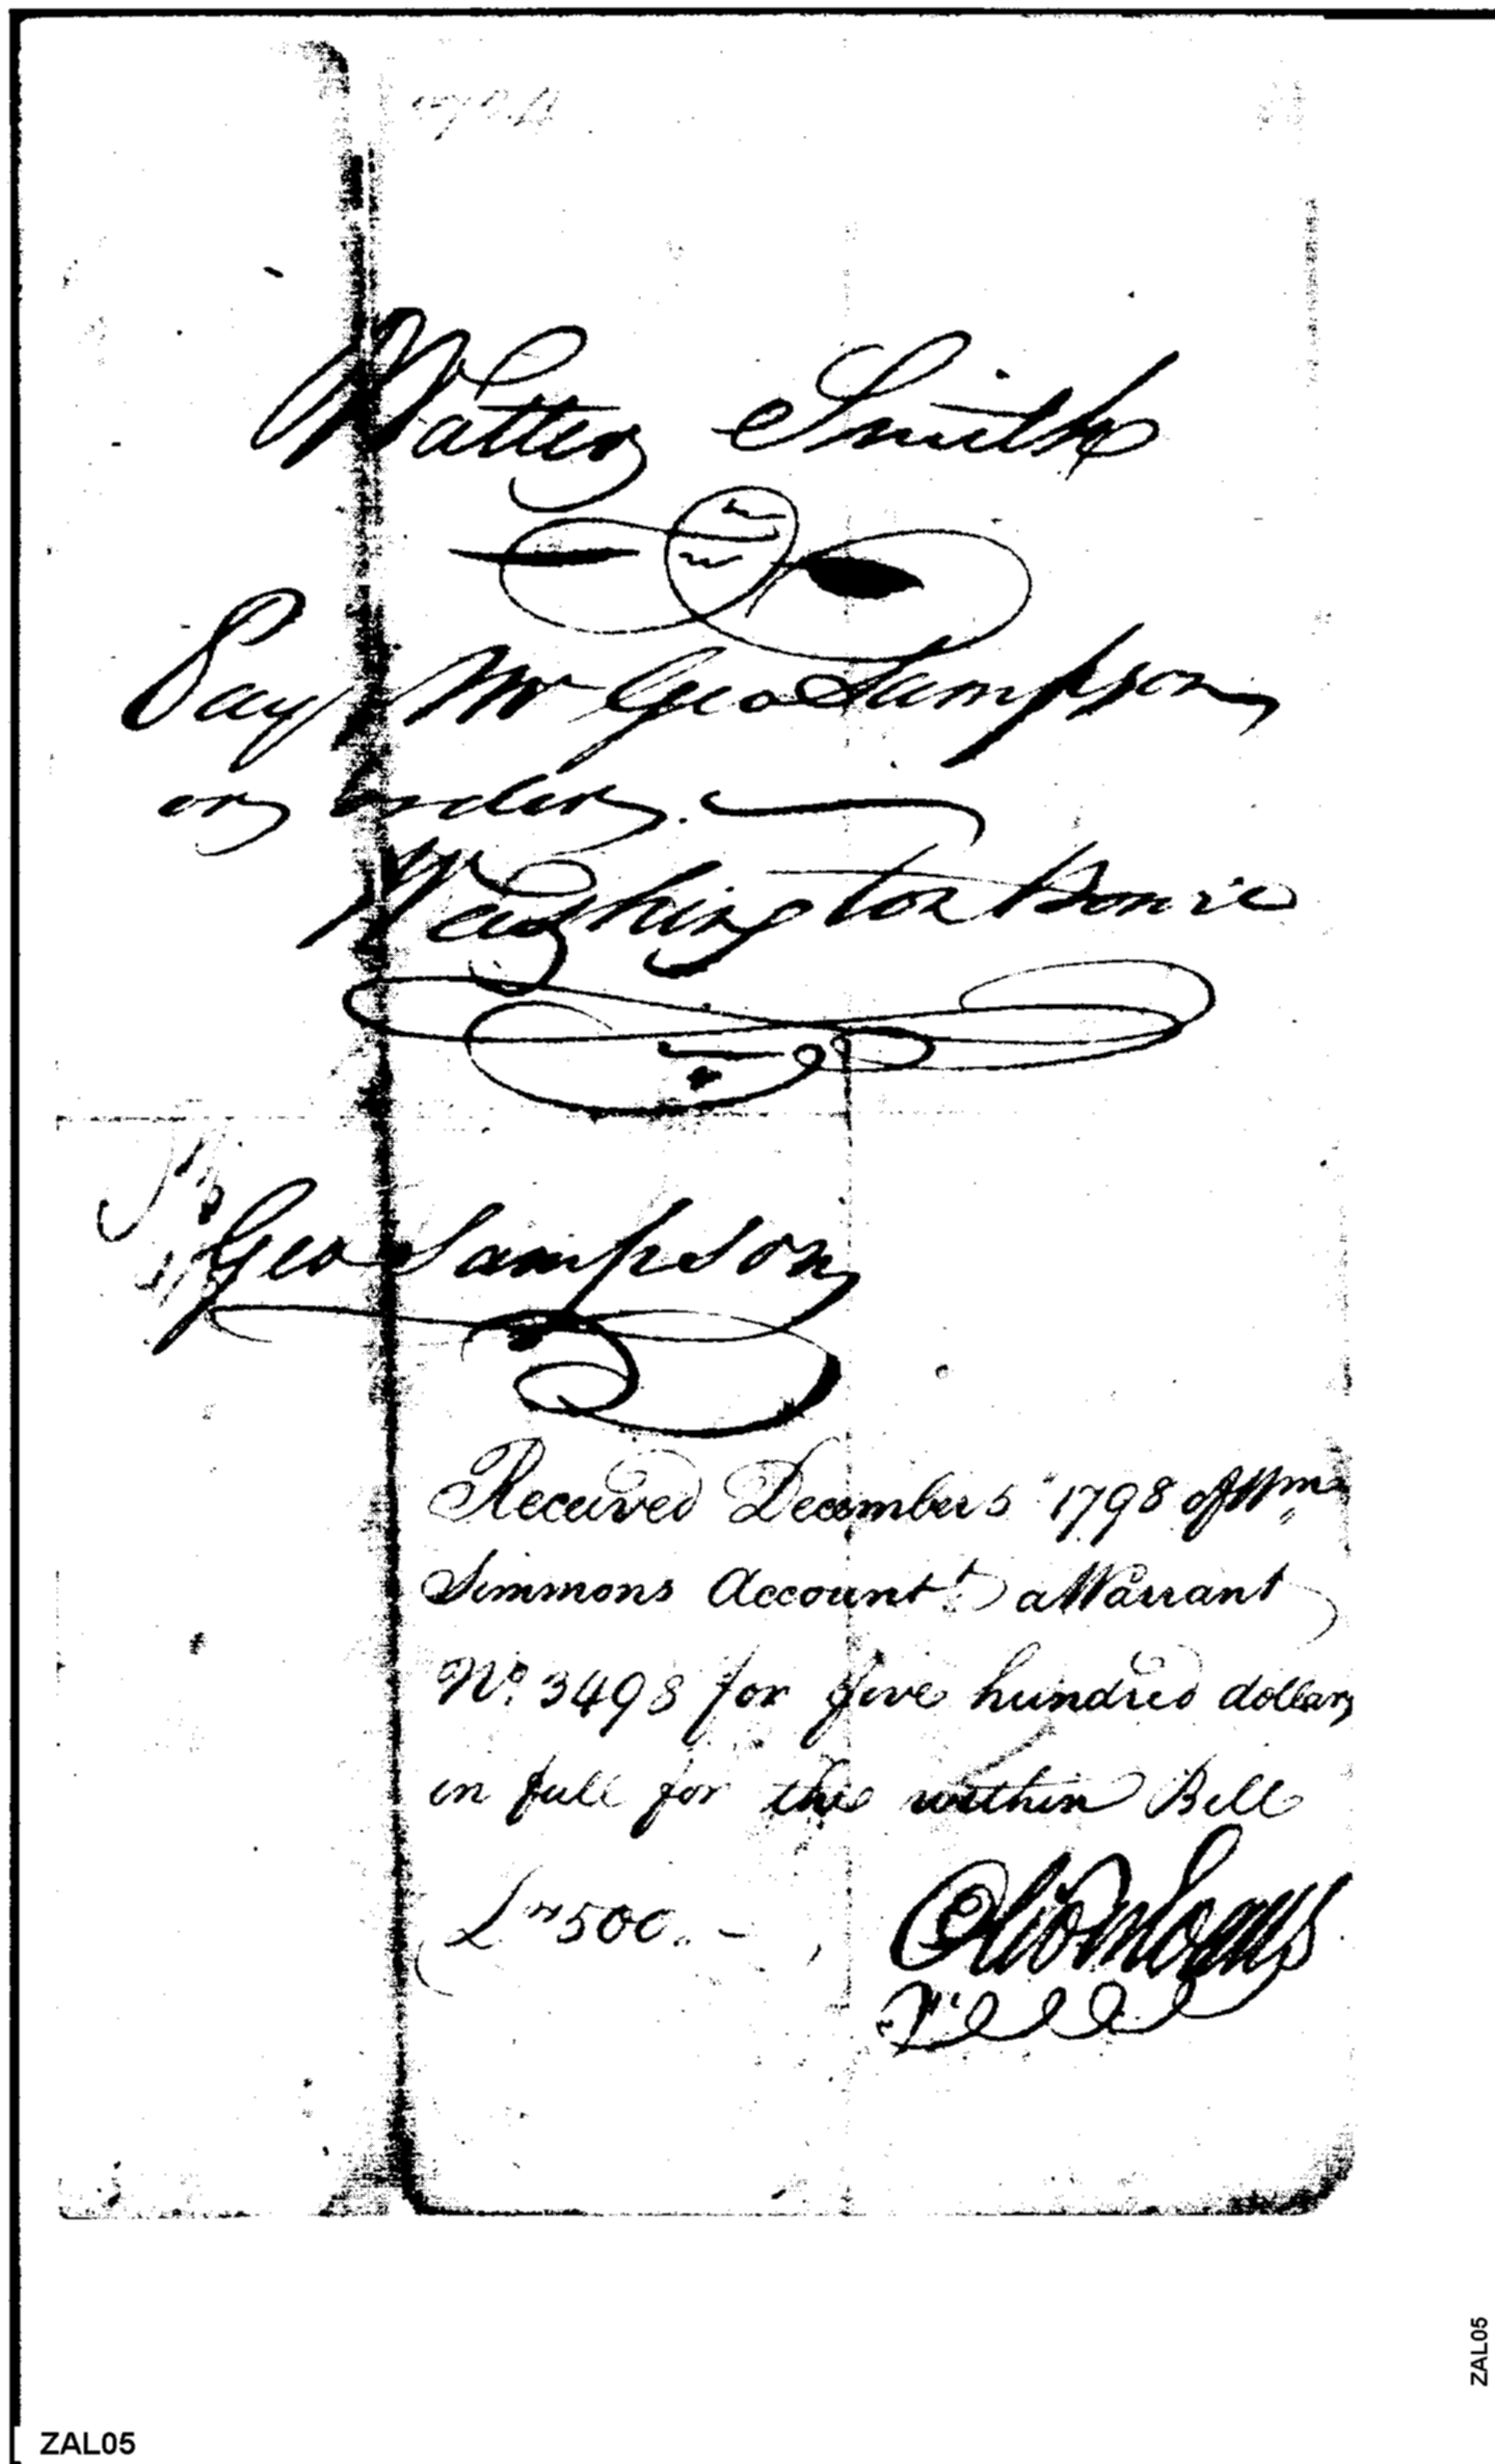 Walter Smith
Pay Mr Geo Sampson
or order.
Washington Bowie
Geo Sampson
Received December 5 1798 of Wm
Simmons Accountt a Warrant
No. 3498 for five hundred dollars
in full for the within Bill
500..
ZAL05
ZAL05